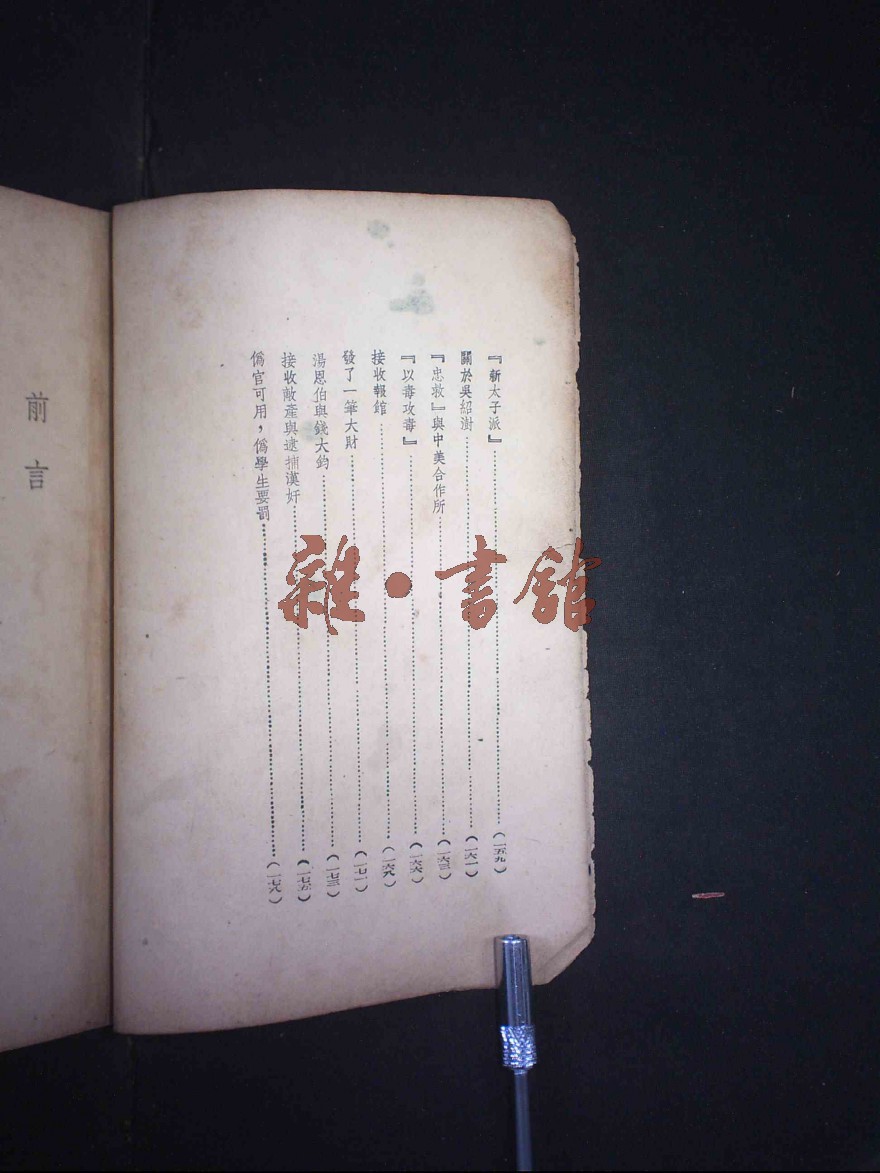 『新太子派』……(一五九)
關於吳紹澍……(一六一)
『忠救』與中美合作所……(一六三)
『以毒攻毒』……(一六六)
接收報館……(一六八)
發了一筆大財……(一七一)
湯恩伯與錢大鈞……(一七三)
接收敵產與逮捕漢奸……(一七五)
僞官可用，僞學生要罰……(一七八)
前言
雜·書館